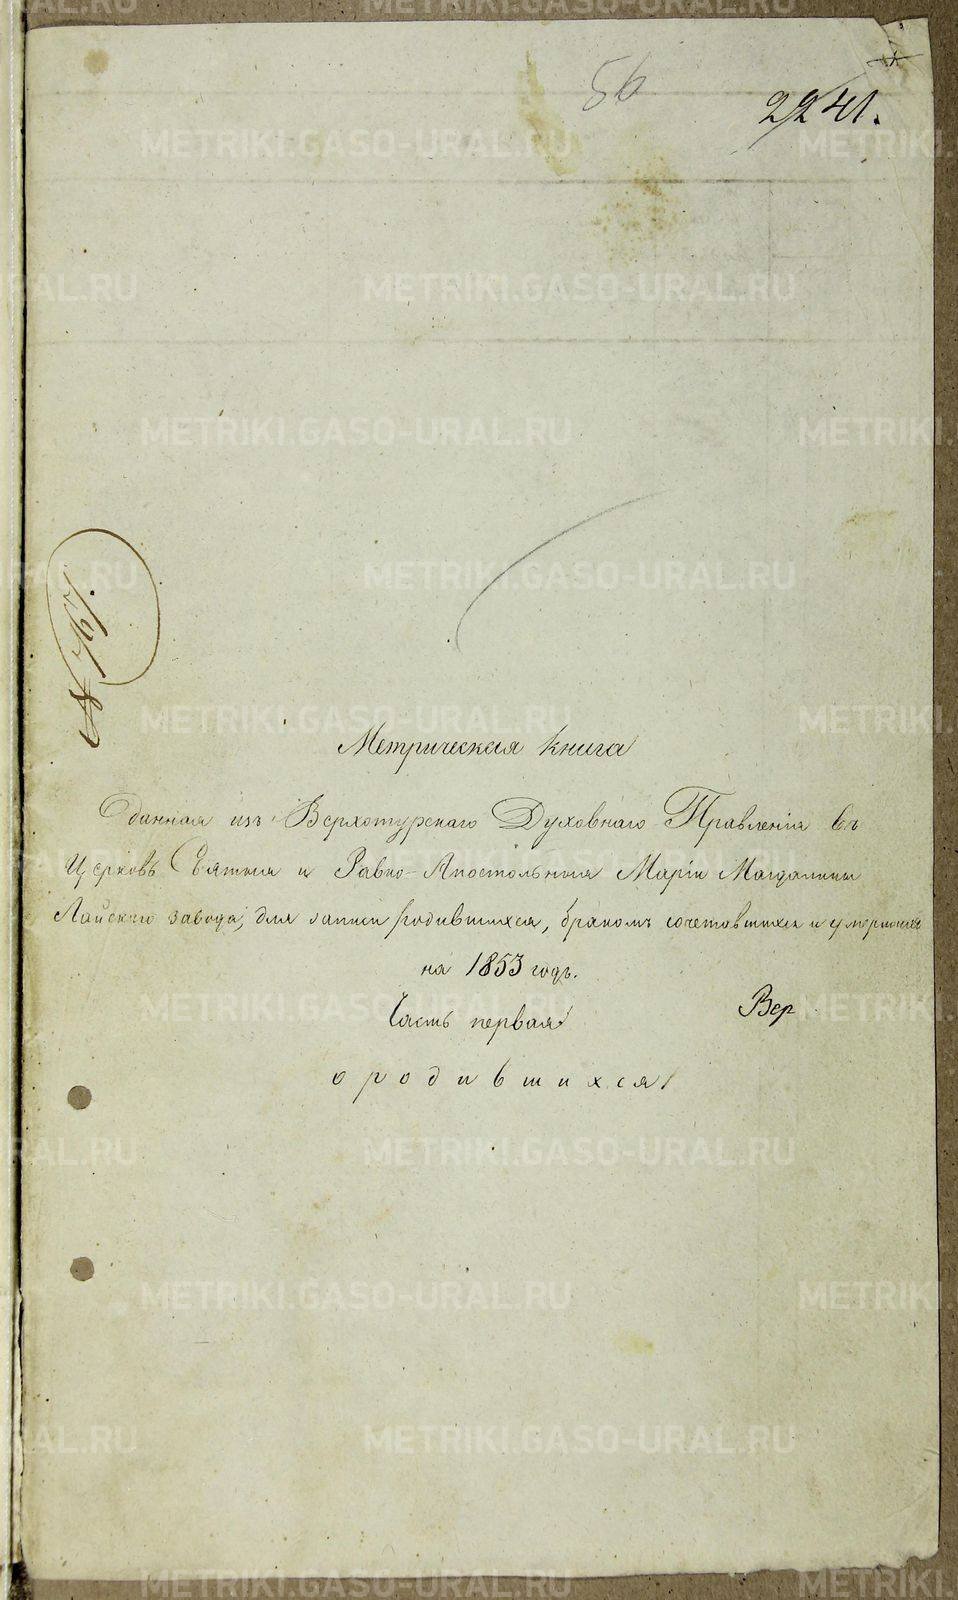 56
2241.
№ 767.
Метрическая книга
данная изъ Верхотурскаго Духовнаго Правленія въ
Церковь Святыя и Равно-Апостольныя Маріи Магдалины
Лайскаго завода, для записи родившихся, бракомъ сочетавшихся и умершихъ
на 1853 годъ.
Часть первая
Вер
о родившихся
METRIKI.GASO-URAL.RU